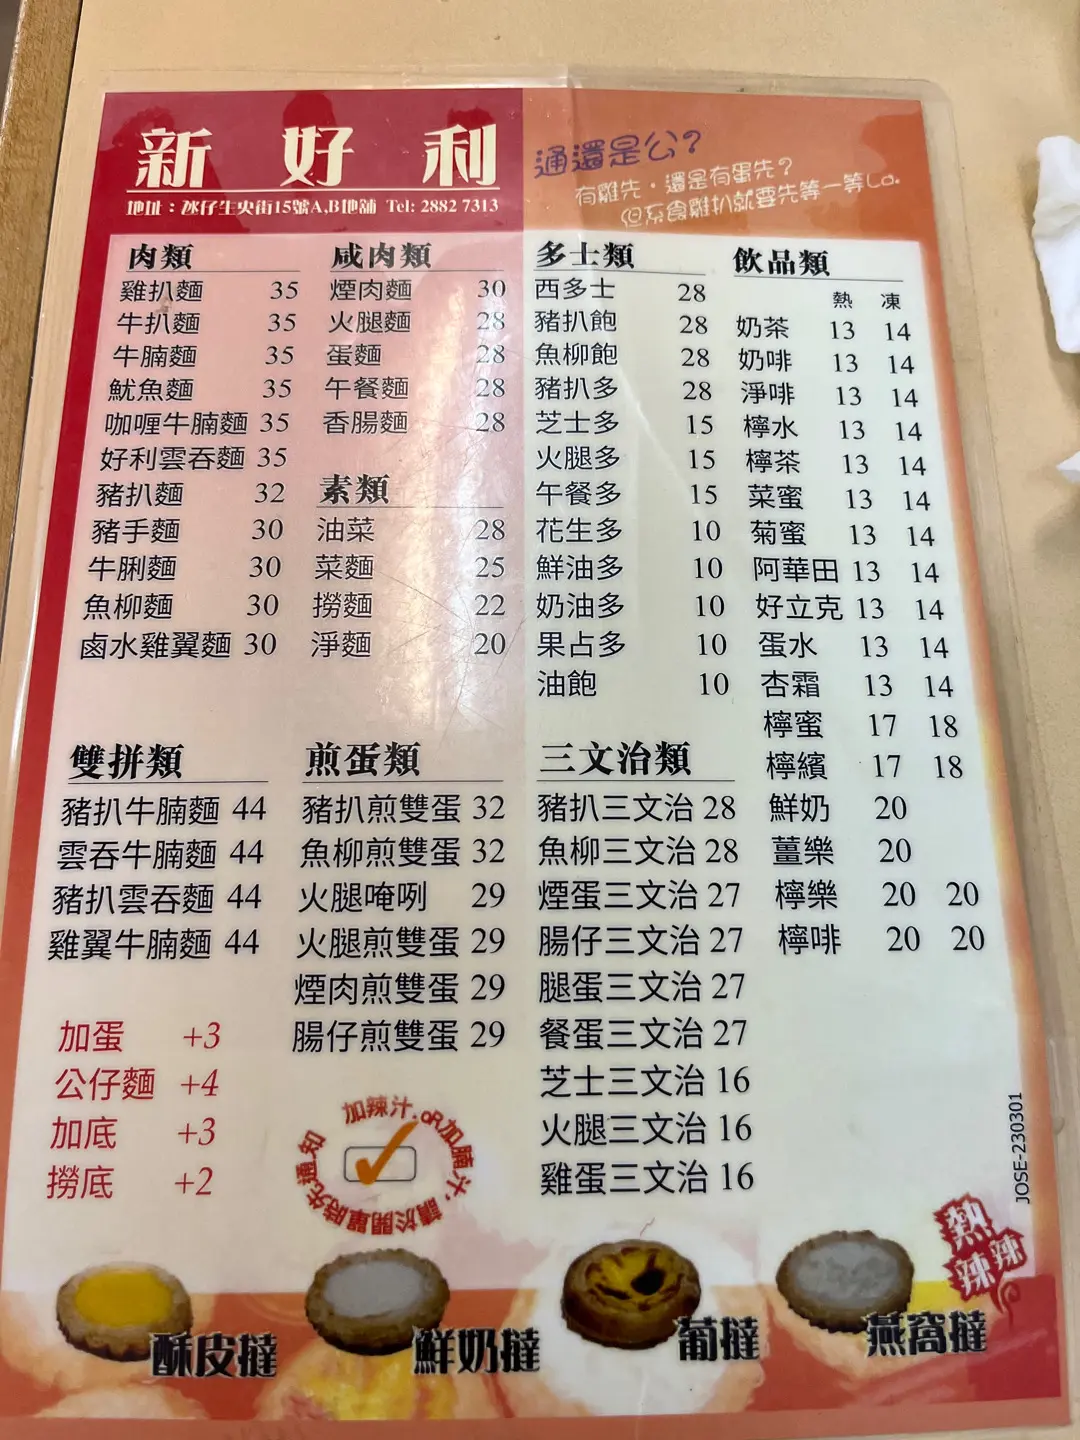 新好利
地址：氹仔生央街15號A,B地舖 Tel: 2882 7313
通還是公？
有雞先，還是有蛋先？
但系食雞扒就要先等一等La.
肉類
雞扒麵 35
牛扒麵 35
牛腩麵 35
魷魚麵 35
咖喱牛腩麵 35
好利雲吞麵 35
豬扒麵 32
豬手麵 30
牛脷麵 30
魚柳麵 30
鹵水雞翼麵 30
咸肉類
煙肉麵 30
火腿麵 28
蛋麵 28
午餐麵 28
香腸麵 28
素類
油菜 28
菜麵 25
撈麵 22
淨麵 20
多士類
西多士 28
豬扒飽 28
魚柳飽 28
豬扒多 28
芝士多 15
火腿多 15
午餐多 15
花生多 10
鮮油多 10
奶油多 10
果占多 10
油飽 10
飲品類
熱 凍
奶茶 13 14
奶啡 13 14
淨啡 13 14
檸水 13 14
檸茶 13 14
菜蜜 13 14
菊蜜 13 14
阿華田 13 14
好立克 13 14
蛋水 13 14
杏霜 13 14
檸蜜 17 18
檸繽 17 18
鮮奶 20
薑樂 20
檸樂 20 20
檸啡 20 20
雙拼類
豬扒牛腩麵 44
雲吞牛腩麵 44
豬扒雲吞麵 44
雞翼牛腩麵 44
加蛋 +3
公仔麵 +4
加底 +3
撈底 +2
煎蛋類
豬扒煎雙蛋 32
魚柳煎雙蛋 32
火腿唵咧 29
火腿煎雙蛋 29
煙肉煎雙蛋 29
腸仔煎雙蛋 29
加辣汁.oR加腩汁，請於開單時先通知
三文治類
豬扒三文治 28
魚柳三文治 28
煙蛋三文治 27
腸仔三文治 27
腿蛋三文治 27
餐蛋三文治 27
芝士三文治 16
火腿三文治 16
雞蛋三文治 16
JOSE-230301
熱辣辣
酥皮撻
鮮奶撻
葡撻
燕窩撻